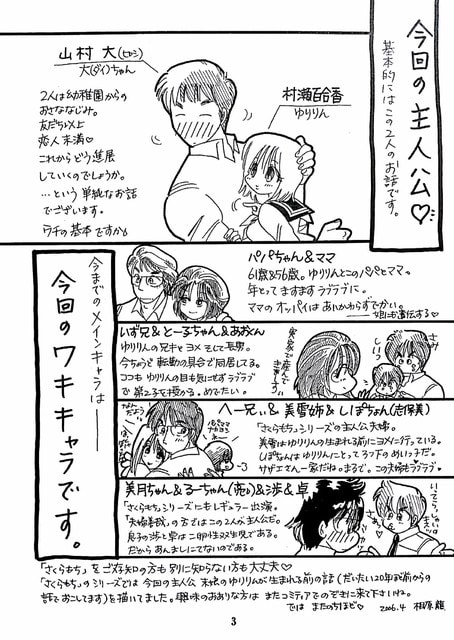 今回の主人公♡
基本的にはこの2人のお話です。
山村 大(ヒロシ)
大(ダイ)ちゃん
村瀬百合香
ゆりりん
2人は幼稚園からの
おさななじみ。
友だち以上
恋人未満♡
これからどう進展
していくのでしょうか。
…という単純なお話
でございます。
ウチの基本ですから
今までのメインキャラは
今回のワキキャラです。
パパちゃん&ママ
61歳&56歳。ゆりりんとこのパパとママ。
年とってますますラブラブに。
ママのオッパイはあいかわらずでかい。
娘にも遺伝する♡
いず兄&とー子ちゃん&あおくん
ゆりりんの兄キとヨメ そして長男。
今ちょうど転勤の具合で同居してる。
ココもゆりりんの目も気にせずラブラブ
で第2子を授かる。めでたい。
実家で産んできまーす
しぃっ
へー兄ぃ&美雪姉&しほちゃん(志保美)
『さくらもち』シリーズの主人公夫婦。
美雪はゆりりんの生まれる前にヨメに行っている。
しほなんはゆりりんにとって5つ下のめいっ子だ。
サザエさん一家だねぇまるで。この夫婦もラブラブ♡
美月ちゃん&るーちゃん(亮)&渉&卓
『さくらもち』シリーズにもレギュラー出演。
『夫婦善哉』の方ではこの2人が主人公だ。
息子の渉と卓は二卵性双生児である。
だからあんましにてないのである。
『さくらもち』をご存知の方も知らない方も大丈夫♡
『さくらもち』のシリーズでは今回の主人公 末娘のゆりりんが生まれる前の話(だいたい20年ぐらい前からの
話でおこしてます)を描いてました。興味のおありな方はまたコミティアでのぞきに来て下さいね。
では またのちほど♡
2006.4 相原龍
3